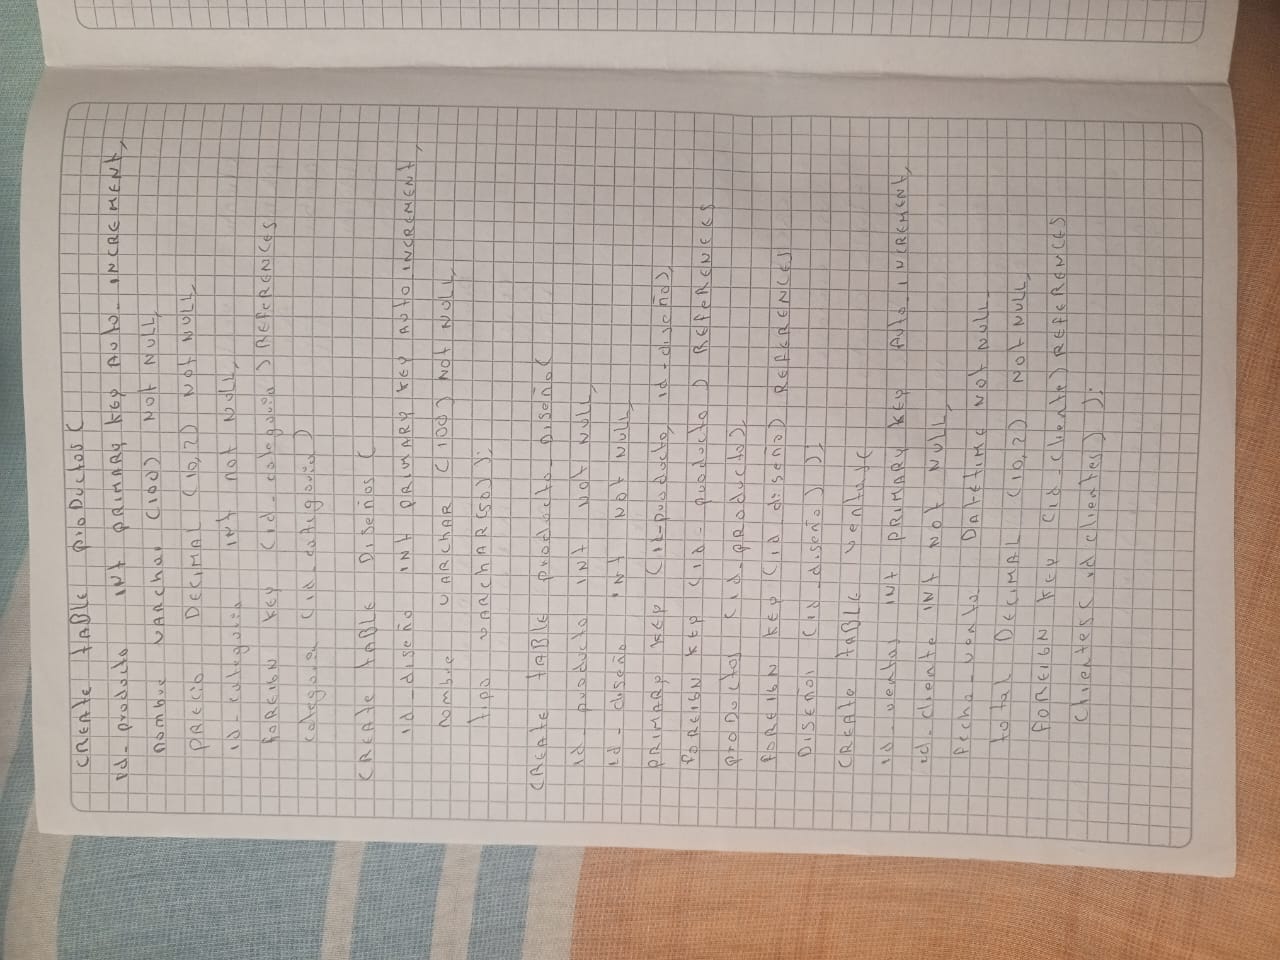 CREATE TABLE proDuctos (
Id_produlto INT PRIMARY KEY AUTO_INCREMENT,
nombre VARChar (100) NOT NULL,
PRECIO DECIMAL (10,2) NOT NULL,
id_categoria INT NOT NULL,
FOREIGN KEY (id_categoria ) REFERENCES
categoria (id_categoria)
CREATE TABLE DISEÑOS (
id_diseño INT PRIMARY KEY AUTO INCREMENT,
nombre VARCHAR (100) NOT NULL,
tipo VARCHAR(50);
CREATE TABLE producto_DISEÑO (
id_producto INT NOT NULL,
id_diseño INT NOT NULL,
PRIMARY KEY (id_producto, id_diseño),
FOREIGN KEY (id_producto ) REFERENCES
proDuctos (id_producto),
FOREIGN KEY (id_diseño) REFERENCES
DISEÑOS (id_diseño) );
CREATE TABLE ventas (
id_ventas INT PRIMARY KEY AUTO_INCREMENT,
id_cliente INT NOT NULL,
fecha_venta DATETIME NOT NULL
total DECIMAL (10,2) NOT NULL,
FOREIGN KEY (id_cliente) REFERENCES
Clientes (id clientes) );